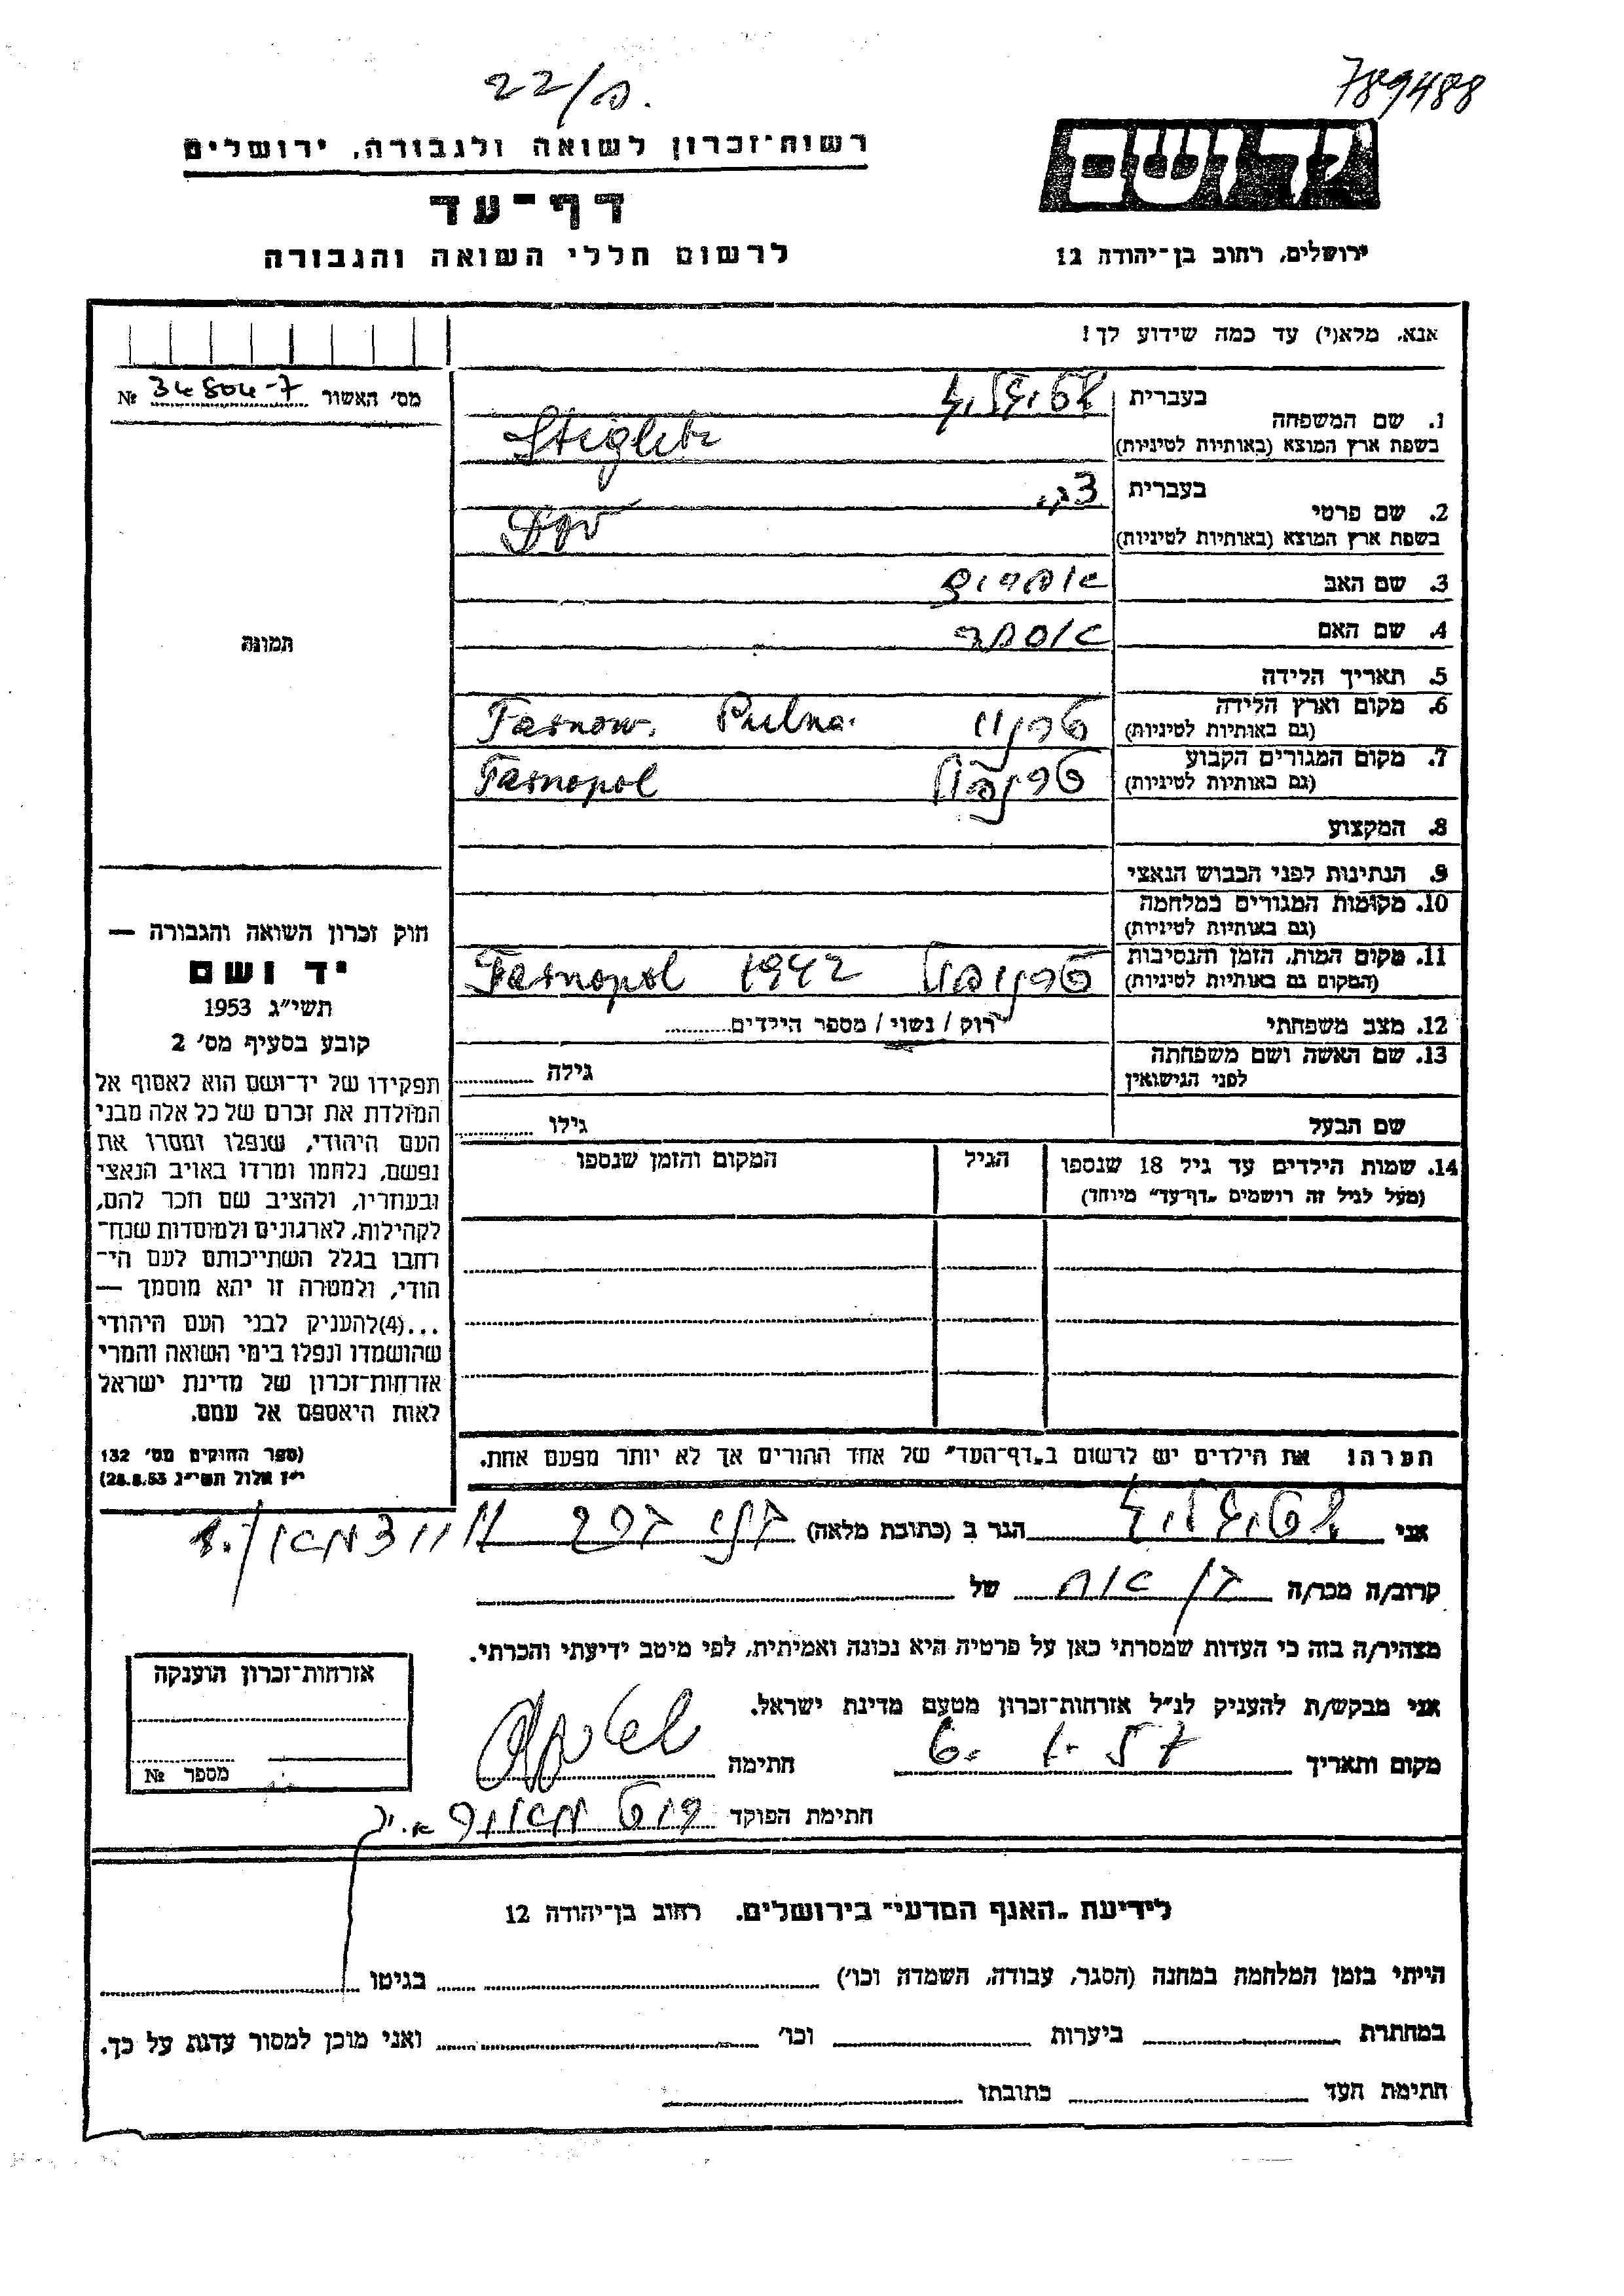 22/ס.
789488
רשות־זכרון לשואה ולגבורה, ירושלים
דף־עד
לרשום חללי השואה והגבורה
יד ושם
ירושלים, רחוב בן־יהודה 12
אנא, מלא(י) עד כמה שידוע לך!
מס׳ האשור 34804-7 №
1. שם המשפחה
בעברית שטיגליץ
בשפת ארץ המוצא (באותיות לטיניות) Stiglitz
2. שם פרטי
בעברית
בשפת ארץ המוצא (באותיות לטיניות)
3. שם האב אפרים
4. שם האם אסתר
5. תאריך הלידה
6. מקום וארץ הלידה
(גם באותיות לטיניות) טרנוו Tarnow.
7. מקום המגורים הקבוע
(גם באותיות לטיניות) טרנופול Tarnopol
8. המקצוע
9. הנתינות לפני הכבוש הנאצי
10. מקומות המגורים במלחמה
(גם באותיות לטיניות)
11. מקום המות, הזמן והנסיבות
(המקום גם באותיות לטיניות) טרנופול 1942 Tarnopol
12. מצב משפחתי רוק / נשוי / מספר הילדים
13. שם האשה ושם משפחתה
לפני הנישואין גילה
שם הבעל גילו
14. שמות הילדים עד גיל 18 שנספו
(מעל לגיל זה רושמים „דף־עד״ מיוחד)
הגיל
המקום והזמן שנספו
תמונה
חוק זכרון השואה והגבורה —
יד ושם
תשי״ג 1953
קובע בסעיף מס׳ 2
תפקידו של יד־ושם הוא לאסוף אל
המולדת את זכרם של כל אלה מבני
העם היהודי, שנפלו ומסרו את
נפשם, נלחמו ומרדו באויב הנאצי
ובעוזריו, ולהציב שם וזכר להם,
לקהילות, לארגונים ולמוסדות שנח־
רבו בגלל השתייכותם לעם הי־
הודי, ולמטרה זו יהא מוסמך —
...(4)להעניק לבני העם היהודי
שהושמדו ונפלו בימי השואה והמרי
אזרחות־זכרון של מדינת ישראל
לאות היאספם אל עמם.
(ספר החוקים מס׳ 132
י״ז אלול תשי״ג 28.8.53)
הערה! את הילדים יש לרשום ב„דף־העד״ של אחד ההורים אך לא יותר מפעם אחת.
אני שטיגליץ הגר ב (כתובת מלאה) בני ברק
קרוב/ה מכר/ה בן אח של
מצהיר/ה בזה כי העדות שמסרתי כאן על פרטיה היא נכונה ואמיתית, לפי מיטב ידיעתי והכרתי.
אני מבקש/ת להעניק לנ״ל אזרחות־זכרון מטעם מדינת ישראל.
מקום ותאריך 6. 1. 57 חתימה
חתימת הפוקד
אזרחות־זכרון הוענקה
מספר №
לידיעת „האגף המדעי״ בירושלים, רחוב בן־יהודה 12
הייתי בזמן המלחמה במחנה (הסגר, עבודה, השמדה וכו׳) בגיטו
במחתרת ביערות וכו׳ ואני מוכן למסור עדות על כך.
חתימת העד כתובתו